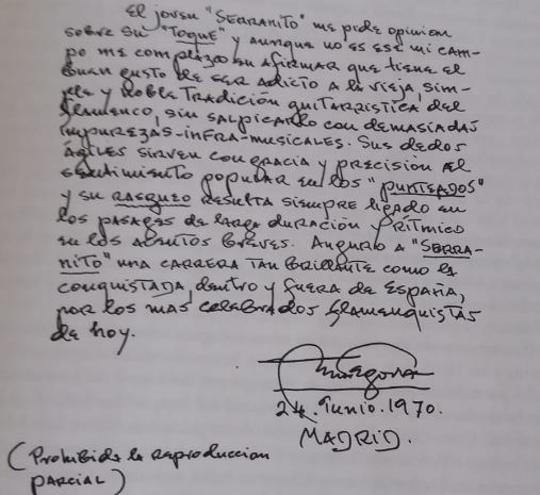 El joven "SERRANITO" me pide opinion
sobre su "Toque" y aunque no es ese mi cam-
po me complazco en afirmar que tiene el
buen gusto de ser adicto a la vieja, sim-
ple y noble TRADICIÓN guitarrística del
flamenco, sin salpicarlo con demasiadas
impurezas-infra-musicales. Sus dedos
ágiles sirven con gracia y precisión al
sentimiento popular en los "punteados"
y su RASGUEO resulta siempre ligado en
los pasages de larga duración y rítmico
en los acentos breves. Auguro a "SERRA-
NITO" una carrera tan brillante como la
conquistada, dentro y fuera de España,
por los mas celebrados flamenquistas
de hoy.
24. Junio. 1970.
MADRID.
(Prohibida la reproduccion
parcial)